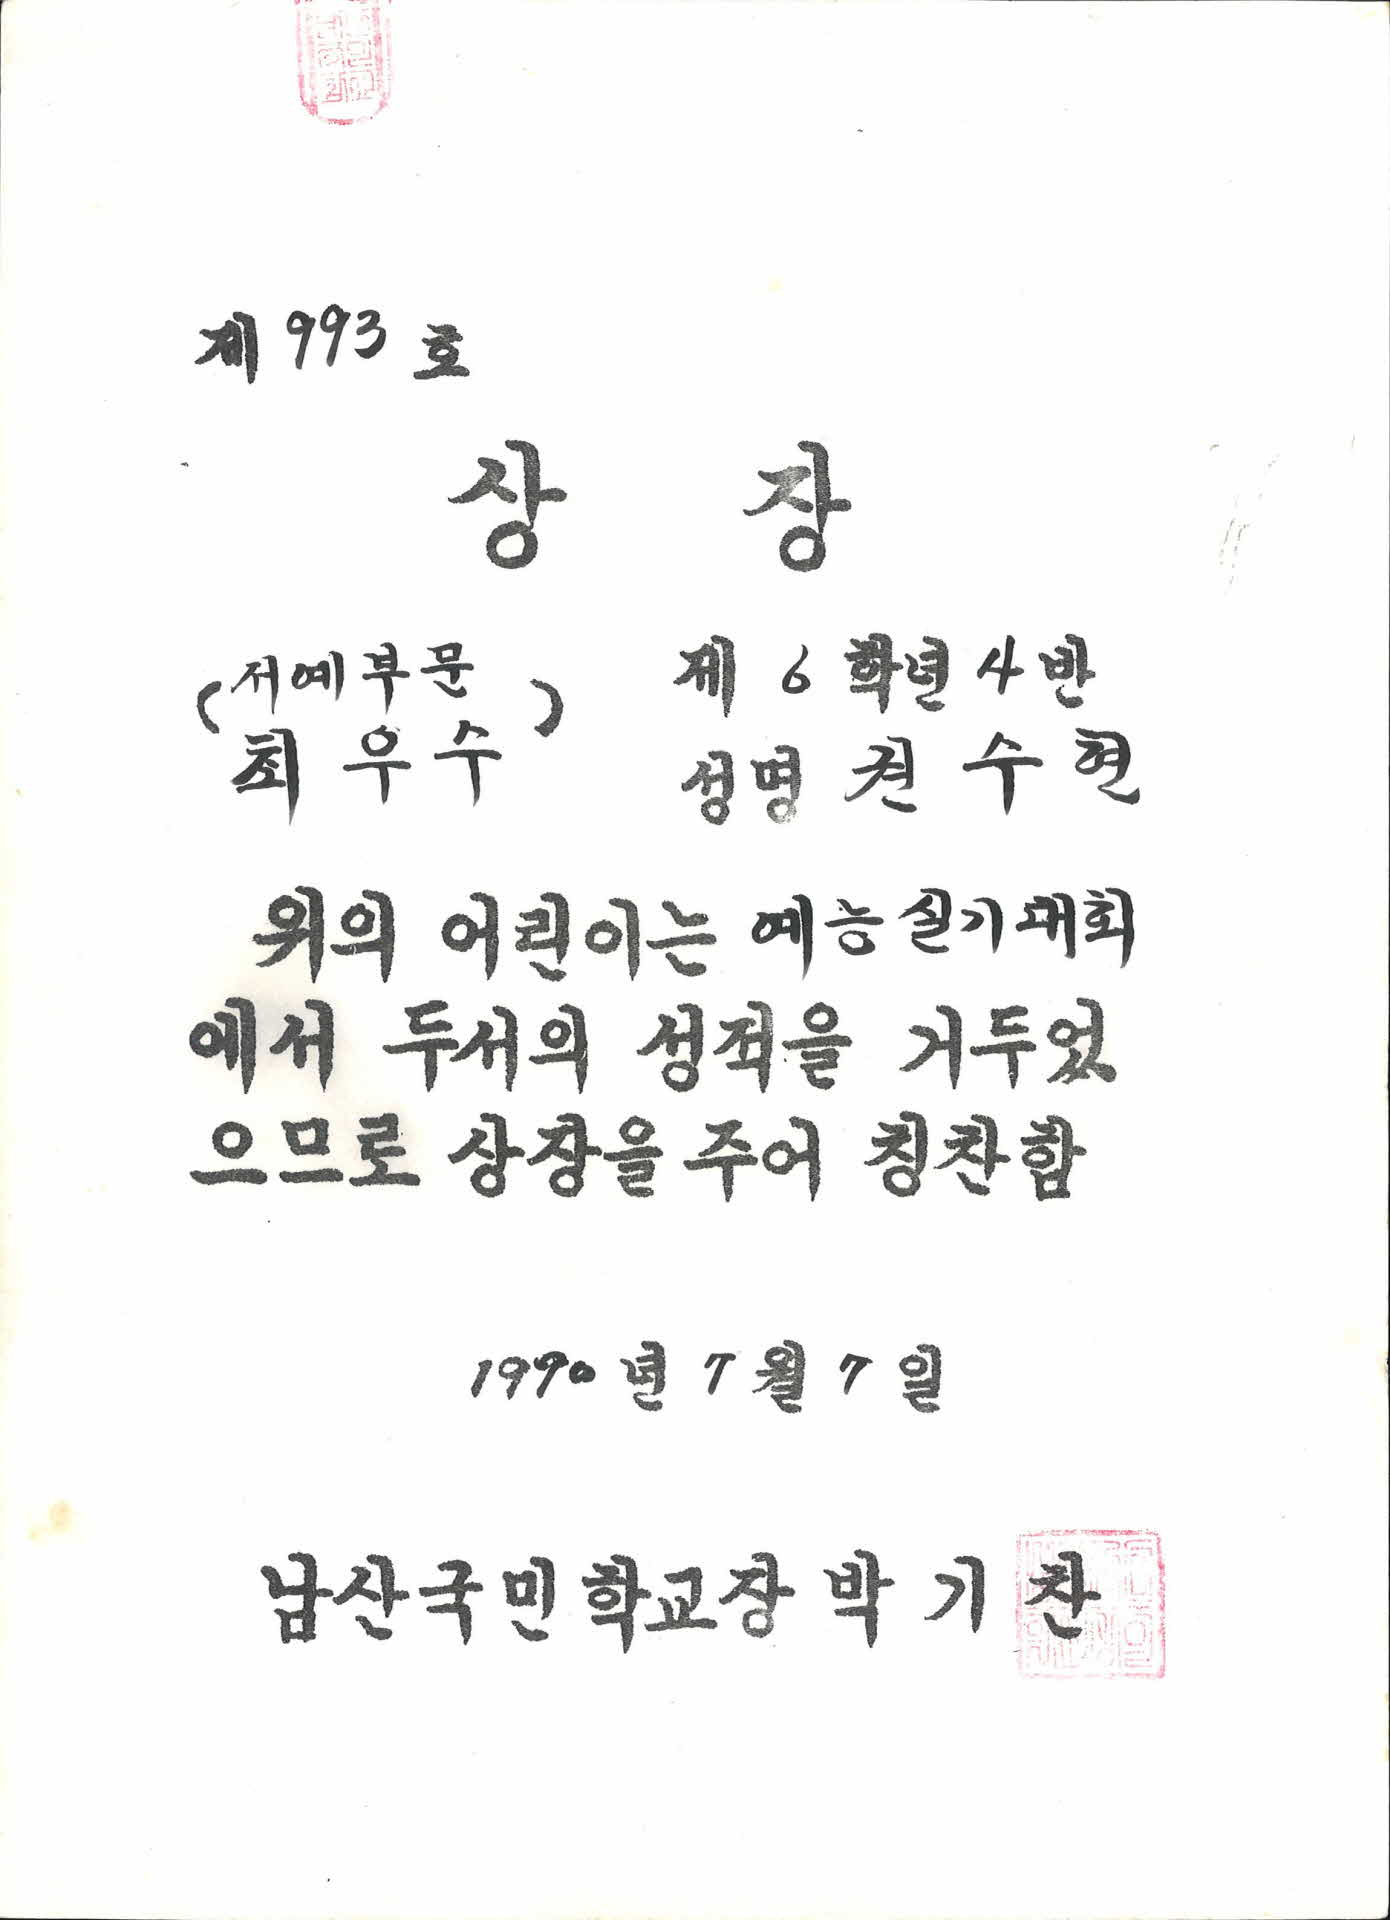 제 993 호
상 장
(서예부문
최우수)
제 6 학년 4 반
성명 권수현
위의 어린이는 예능실기대회
에서 두서의 성적을 거두었
으므로 상장을 주어 칭찬함
1990 년 7 월 7 일
남산국민학교장 박기찬